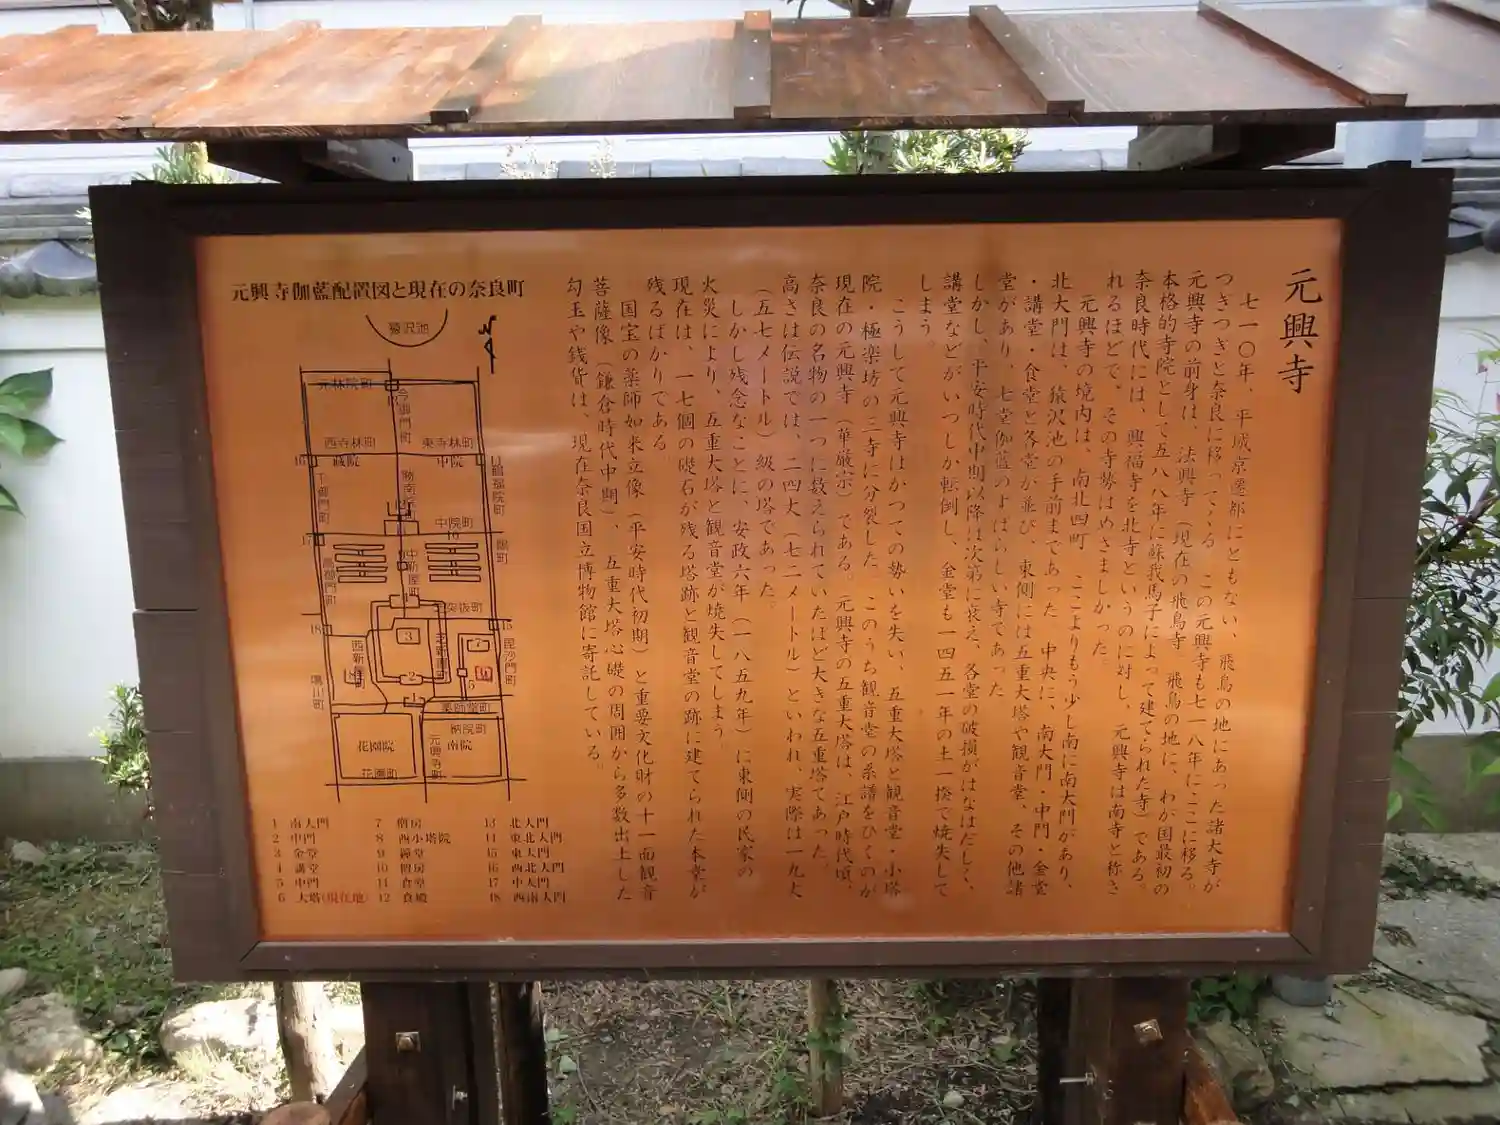 元興寺
七一〇年、平城京遷都にともない、飛鳥の地にあった諸大寺が
つぎつぎと奈良に移ってくる。この元興寺も七一八年にここに移る。
元興寺の前身は、法興寺(現在の飛鳥寺。飛鳥の地に、わが国最初の
本格的寺院として五八八年に蘇我馬子によって建てられた寺)である。
奈良時代には、興福寺を北寺というのに対し、元興寺は南寺と称さ
れるほどで、その寺勢はめざましかった。
元興寺の境内は、南北四町、ここよりもう少し南に南大門があり、
北大門は、猿沢池の手前まであった。中央に、南大門・中門・金堂
・講堂・食堂と各堂が並び、東側には五重大塔や観音堂、その他諸
堂があり、七堂伽藍のすばらしい寺であった。
しかし、平安時代中期以降は次第に衰え、各堂の破損がはなはだしく、
講堂などがいつしか転倒し、金堂も一四五一年の土一揆で焼失して
しまう。
こうして元興寺はかつての勢いを失い、五重大塔と観音堂・小塔
院・極楽坊の三寺に分裂した。このうち観音堂の系譜をひくのが
現在の元興寺(華厳宗)である。元興寺の五重大塔は、江戸時代頃、
奈良の名物の一つに数えられていたほど大きな五重塔であった。
高さは伝説では、二四丈(七二メートル)といわれ、実際は一九丈
(五七メートル)級の塔であった。
しかし残念なことに、安政六年(一八五九年)に東側の民家の
火災により、五重大塔と観音堂が焼失してしまう。
現在は、一七個の礎石が残る塔跡と観音堂の跡に建てられた本堂が
残るばかりである。
国宝の薬師如来立像(平安時代初期)と重要文化財の十一面観音
菩薩像(鎌倉時代中期)、五重大塔心礎の周囲から多数出土した
勾玉や銭貨は、現在奈良国立博物館に寄託している。
元興寺伽藍配置図と現在の奈良町
猿沢池
元林院町
今御門町
西寺林町
東寺林町
蔵院
中院
鶴福院町
下御門町
勢南院
中院町
中新屋町
高御門町
突抜町
芝新屋町
西新屋町
毘沙門町
薬師堂町
納院町
花園院
南院
元興寺町
花園町
1 南大門
2 中門
3 金堂
4 講堂
5 中門
6 大塔(現在地)
7 僧房
8 西小塔院
9 鐘堂
10 僧房
11 食堂
12 食殿
13 北大門
14 東北大門
15 東大門
16 西北大門
17 中大門
18 西南大門